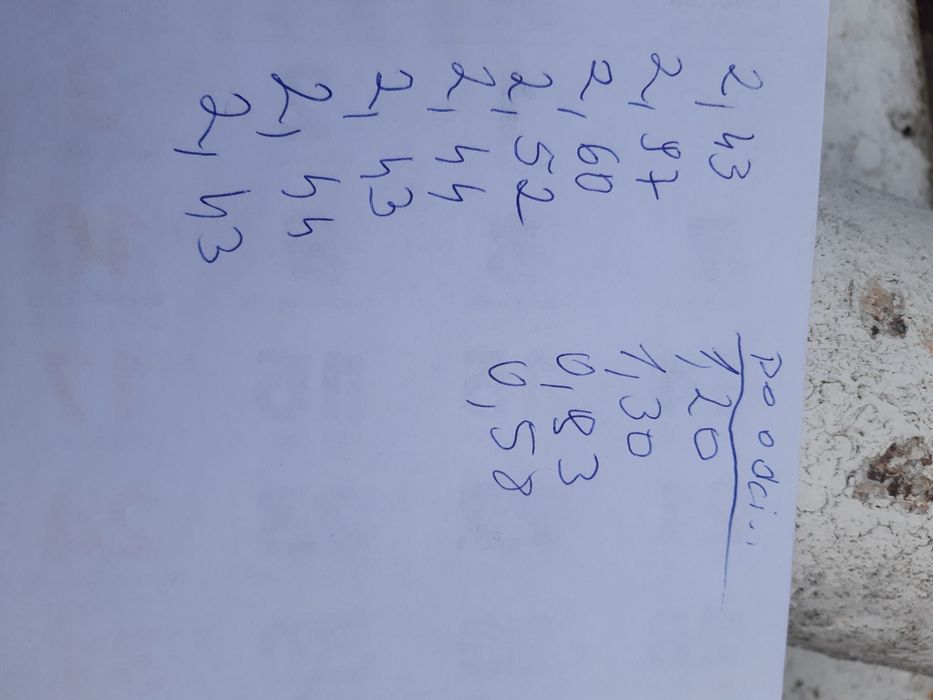 2,43
2,60
2,52
2,44
2,43
2,44
2,43
po odci...
1,20
1,30
0,83
0,58